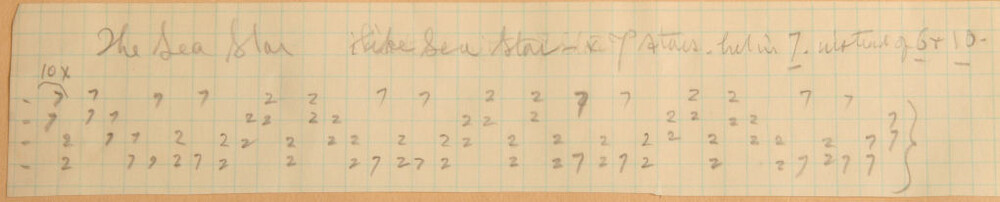 The Sea Star like Sea Star - & 7 Stars. but in 7. instead of 5 & 10.
10x
- 7 7 7 7 2 2 7 7 2 2 7 7 2 2 7 7
- 7 7 7 2 2 2 2 2 2 2 2 2 2 2 7
- 2 7 7 2 2 2 2 2 2 2 2 2 2 2 2 2 2 2 2 2 2 2 7 7
- 2 7 7 2 7 2 2 2 7 2 7 2 2 2 7 2 7 2 2 2 7 2 7 7